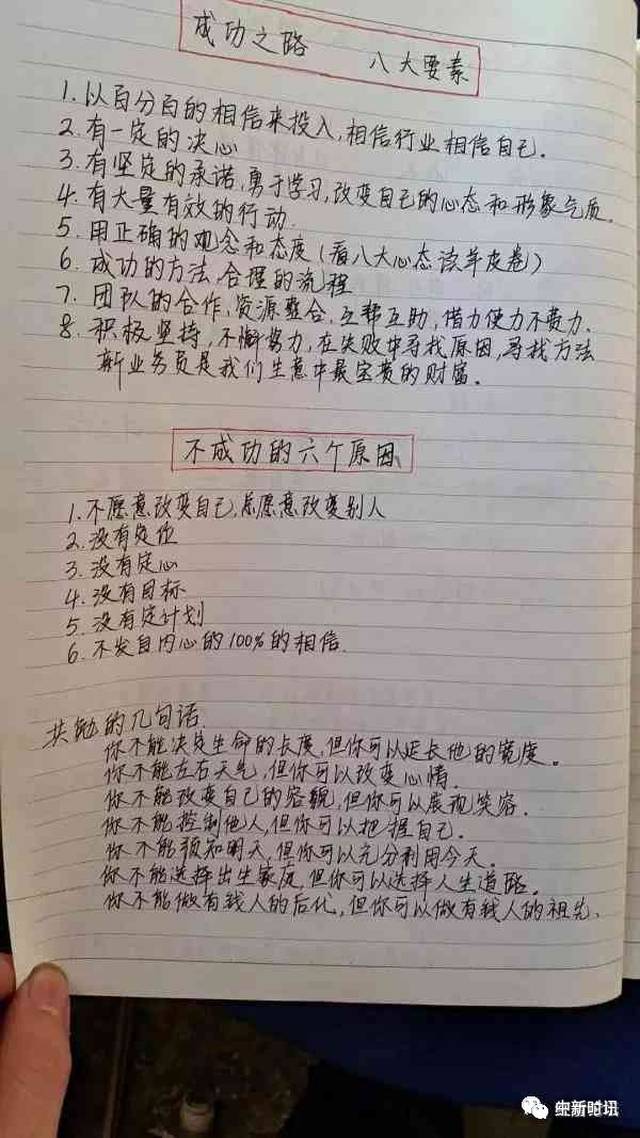 成功之路 八大要素
1. 以百分百的相信来投入,相信行业相信自己.
2. 有一定的决心
3. 有坚定的承诺,勇于学习,改变自己的心态和形象气质.
4. 有大量有效的行动.
5. 用正确的观念和态度(看八大心态读羊皮卷)
6. 成功的方法,合理的流程
7. 团队的合作,资源整合,互帮互助,借力使力不费力.
8. 积极坚持,不懈努力,在失败中寻找原因,寻找方法
新业务员是我们生意中最宝贵的财富.
不成功的六个原因
1. 不愿意改变自己,总愿意改变别人
2. 没有定位
3. 没有定心
4. 没有目标
5. 没有定计划
6. 不发自内心的100%的相信.
共勉的几句话
你不能决定生命的长度,但你可以延长他的宽度。
你不能左右天气,但你可以改变心情.
你不能改变自己的容貌,但你可以展现笑容.
你不能控制他人,但你可以把握自己.
你不能预知明天,但你可以充分利用今天。
你不能选择出生家庭,但你可以选择人生道路。
你不能做有钱人的后代,但你可以做有钱人的祖先.